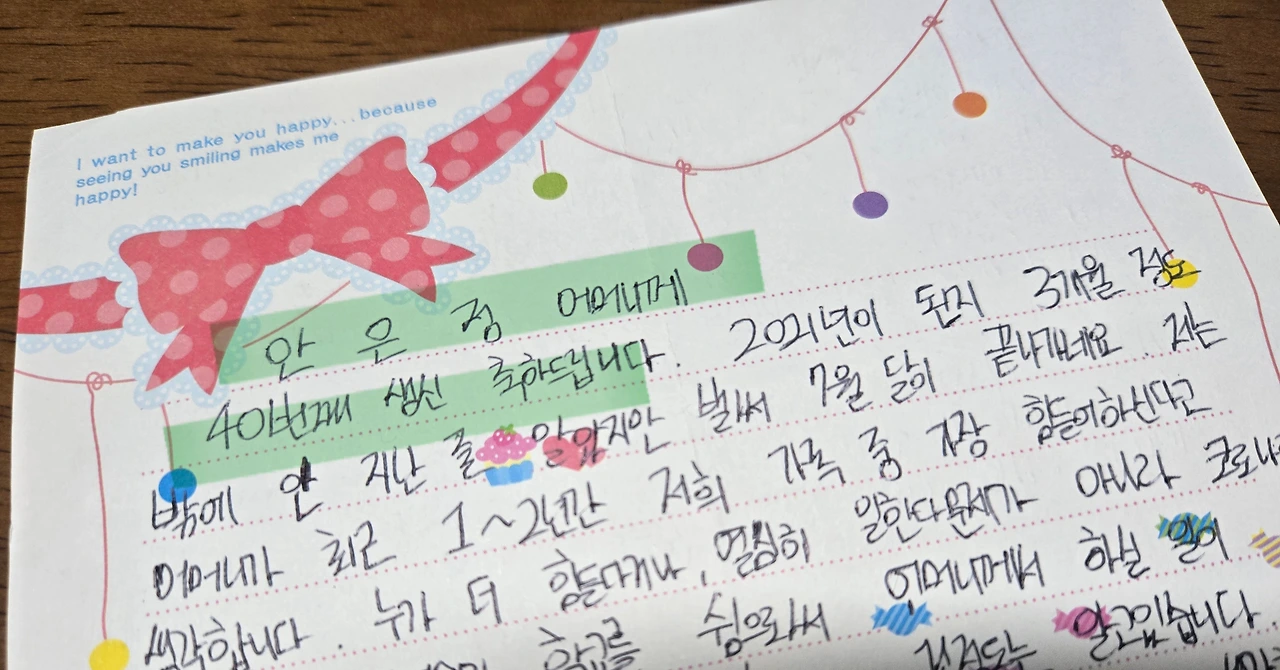 I want to make you happy...because
seeing you smiling makes me
happy!
안 은 정 어머니께
40번째 생신 축하드립니다. 2021년이 된지 3개월 정도
밖에 안 지난 줄 알았지만 벌써 7월 달이 끝나가네요. 저는
어머니가 최근 1~2년간 저희 가족 중 가장 힘들어하신다고
생각합니다. 누가 더 힘들다거나, 열심히 일한다 문제가 아니라 코로나
쉼으로서 어머니께서 하실 일이
학교를 알고있습니다.